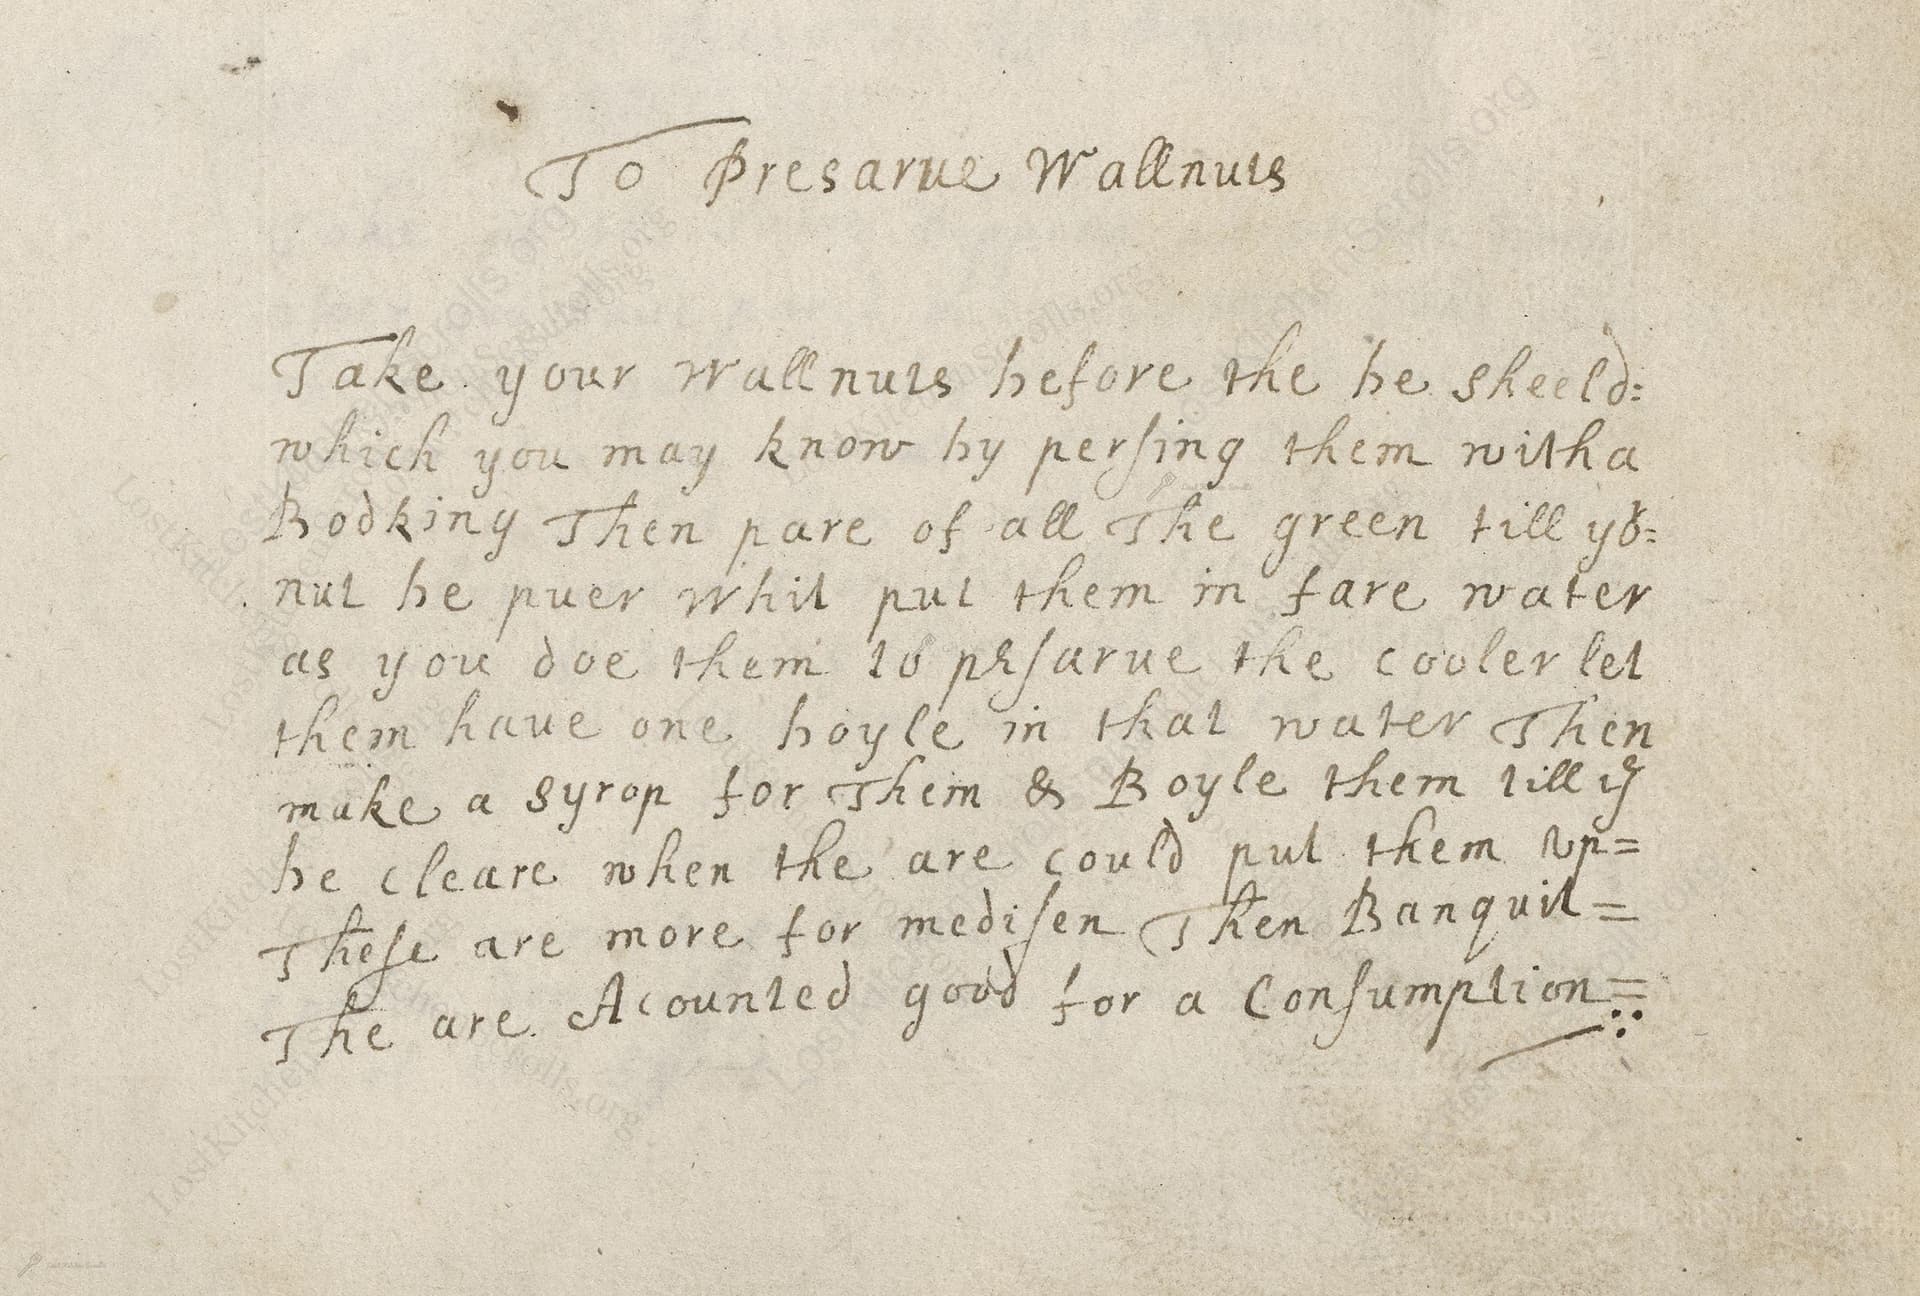 To Presarue Wallnuts
Take your Wallnuts before the be sheeld:
which you may know by persing them witha
Bodking Then pare of all The green till yor=
nut be puer Whit put them in fare water
as you doe them to presarue the cooler let
them haue one boyle in that water Then
make a syrop for Them & Boyle them till
be cleare when the are could put them vp=
These are more for medisen Then Banquit=
The are Acounted good for a Consumption=